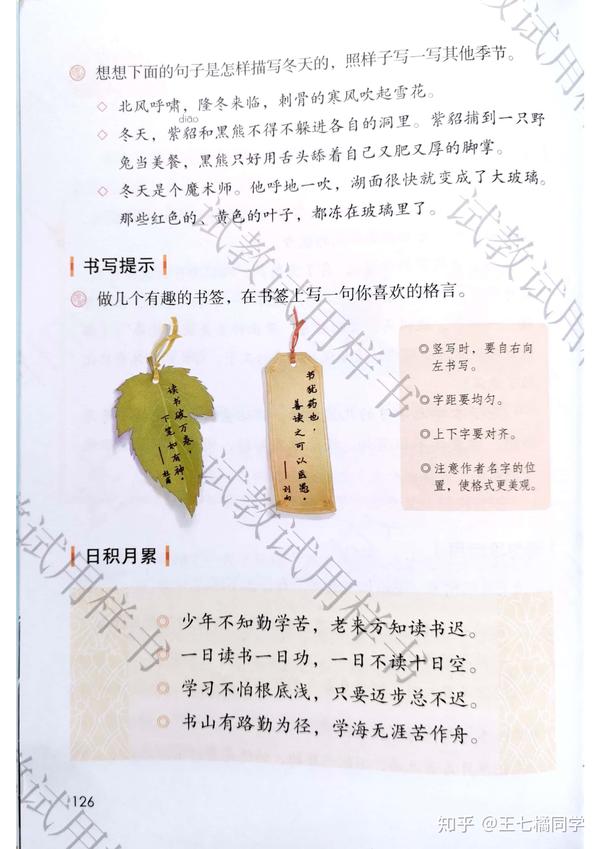 想想下面的句子是怎样描写冬天的，照样子写一写其他季节。
北风呼啸，隆冬来临，刺骨的寒风吹起雪花。
diāo
冬天，紫貂和黑熊不得不躲进各自的洞里。紫貂捕到一只野
兔当美餐，黑熊只好用舌头舔着自己又肥又厚的脚掌。
冬天是个魔术师。他呼地一吹，湖面很快就变成了大玻璃。
那些红色的、黄色的叶子，都冻在玻璃里了。
书写提示
做几个有趣的书签，在书签上写一句你喜欢的格言。
读书破万卷，
下笔如有神。
——杜甫
书犹药也，
善读之可以医愚。
——刘向
◎竖写时，要自右向
左书写。
◎字距要均匀。
◎上下字要对齐。
◎注意作者名字的位
置，使格式更美观。
日积月累
少年不知勤学苦，老来方知读书迟。
一日读书一日功，一日不读十日空。
学习不怕根底浅，只要迈步总不迟。
书山有路勤为径，学海无涯苦作舟。
126
知乎 @王七橘同学
试教试用样书
试教试用样书
试教试用样书
试教试用样书
试教试用样书
试教试用样书